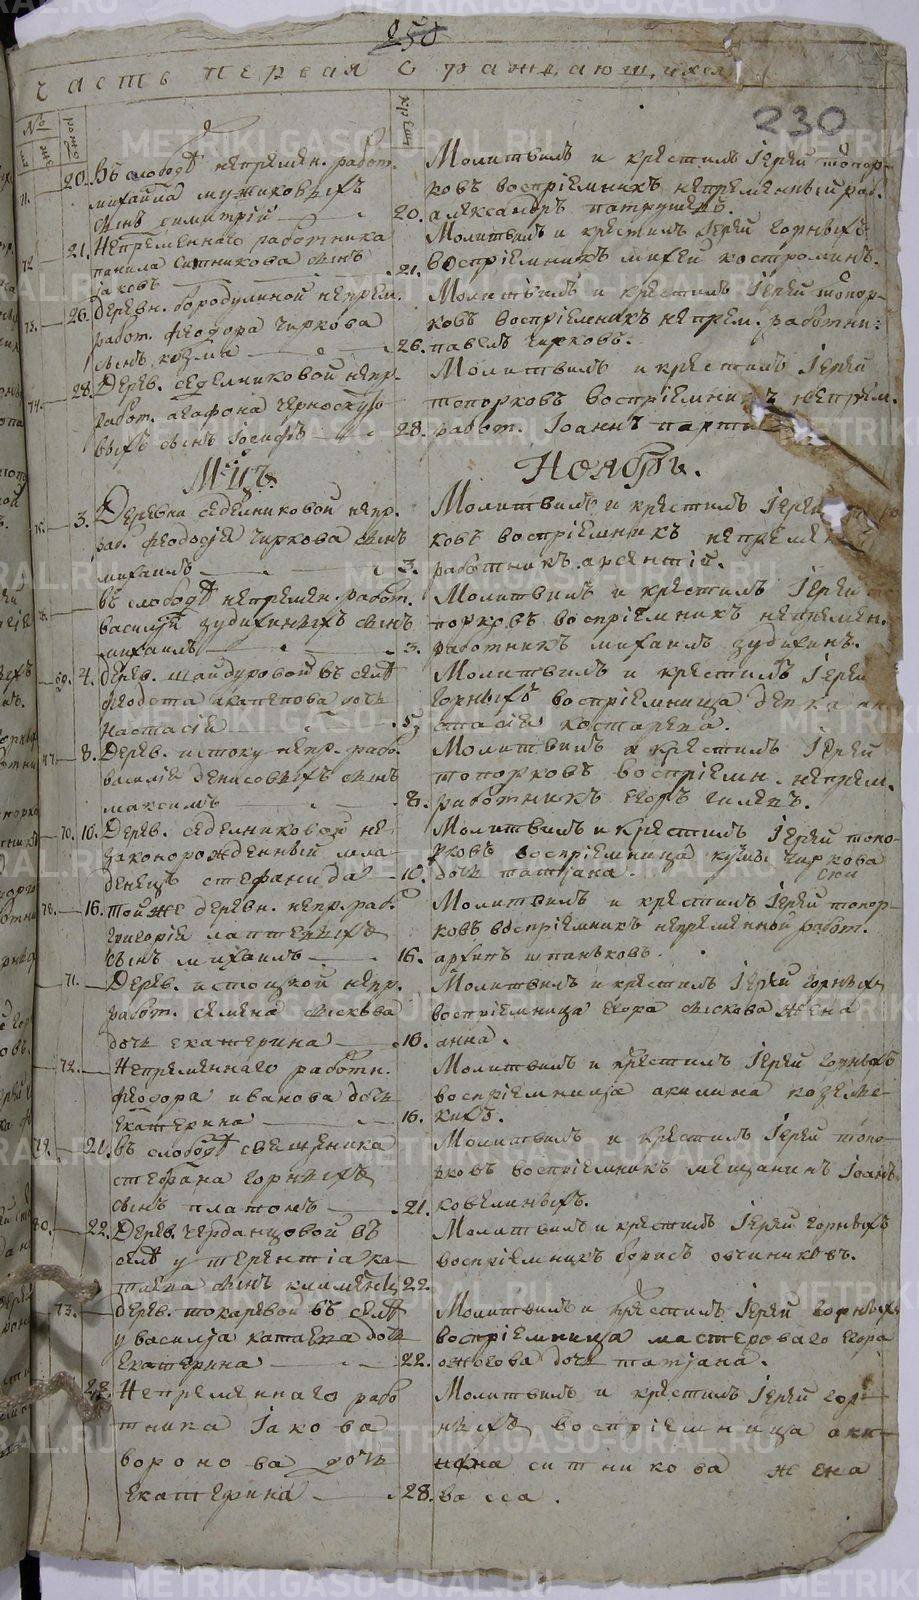 250
часть первая о раждающихся
230
№
20. Въ слободѣ непремен. работ.
михайла мужиковыхъ
сынъ димитрій
20.
Молитвилъ и крестилъ Іерей топор-
ковъ воспріемникъ непремѣнный раб.
александръ патрушевъ.
72 21. Непременнаго работника
панила ситникова сынъ
Іаковъ
21.
Молитвилъ и крестилъ Іерей Горныхъ
воспріемникъ михей костроминъ.
73. 26. Деревн. бородулиной непрем.
работ. феодора чиркова
сынъ козма
26.
Молитвилъ и крестилъ Іерей топор-
ковъ воспріемникъ непрем. работни:
павелъ чирковъ.
74. 28. Дерев. седелниковой непр.
работ. агафона черноскуто
выхъ сынъ Іосифъ
28.
Молитвилъ и крестилъ Іерей
топорковъ воспріемникъ непрем.
работ. Іоаннъ
М-цъ Ноябрь.
75. 3. Деревни седелниковой непр.
раб. феодосія чиркова сынъ
михаилъ
3.
Молитвилъ и крестилъ Іерей
ковъ воспріемникъ непремен
работникъ арсентій.
въ слободѣ непремен. работ.
василія зудихиныхъ сынъ
михаилъ
3.
Молитвилъ и крестилъ Іерей то
порковъ воспріемникъ непремен.
работникъ михаилъ зудихинъ.
69. 4. дерев. шайдуровой въ селѣ
феодота дочь
настасія
5
Молитвилъ и крестилъ Іерей
Горныхъ воспріемница девка ана
стасія костарева.
77. 8. Дерев. истоку непр. рабо.
василія денисовыхъ сынъ
максимъ
8.
Молитвилъ и крестилъ Іерей
топорковъ воспріемн. непрем.
работникъ егоръ гилевъ.
70. 10. Дерев. седелниковой не-
законорожденный мла-
денецъ стефанида
10.
Молитвилъ и крестилъ Іерей топо-
рковъ воспріемница чиркова
дочь татіана.
78. 16. Той же деревн. непр. раб.
григорія лаптевыхъ
сынъ михаилъ
16.
Молитвилъ и крестилъ Іерей топор-
ковъ воспріемникъ непременной работ.
архипъ шпаньковъ.
71. Дерев. истоцкой непр.
работ. семена сыскова
дочь екатерина
16.
Молитвилъ и крестилъ Іерей Горныхъ
воспріемница егора сыскова жена
анна.
72. Непременнаго работн.
феодора иванова дочь
екатерина
16.
Молитвилъ и крестилъ Іерей Горныхъ
воспріемница акилина
79. 21. въ слободѣ священника
стефана Горныхъ
сынъ платонъ
21.
Молитвилъ и крестилъ Іерей топо-
рковъ воспріемникъ мещанинъ Іоанъ
ковелиныхъ.
80. 22. Дерев. черданцовой въ
селѣ у терентіа ка-
таева сынъ климентъ
22.
Молитвилъ и крестилъ Іерей Горныхъ
воспріемникъ борисъ овчиниковъ.
73. дерев. токаревой въ селѣ
у василја катаева дочь
екатерина
22.
Молитвилъ и крестилъ Іерей Горныхъ
воспріемница мастероваго егора
ожогова дочь татјана.
28. Непременнаго рабо
тника Іакова
воронова дочь
екатерина
28.
Молитвилъ и крестилъ Іерей Гор-
ныхъ воспріемница
ситникова жена
васса.
METRIKI.GASO-URAL.RU